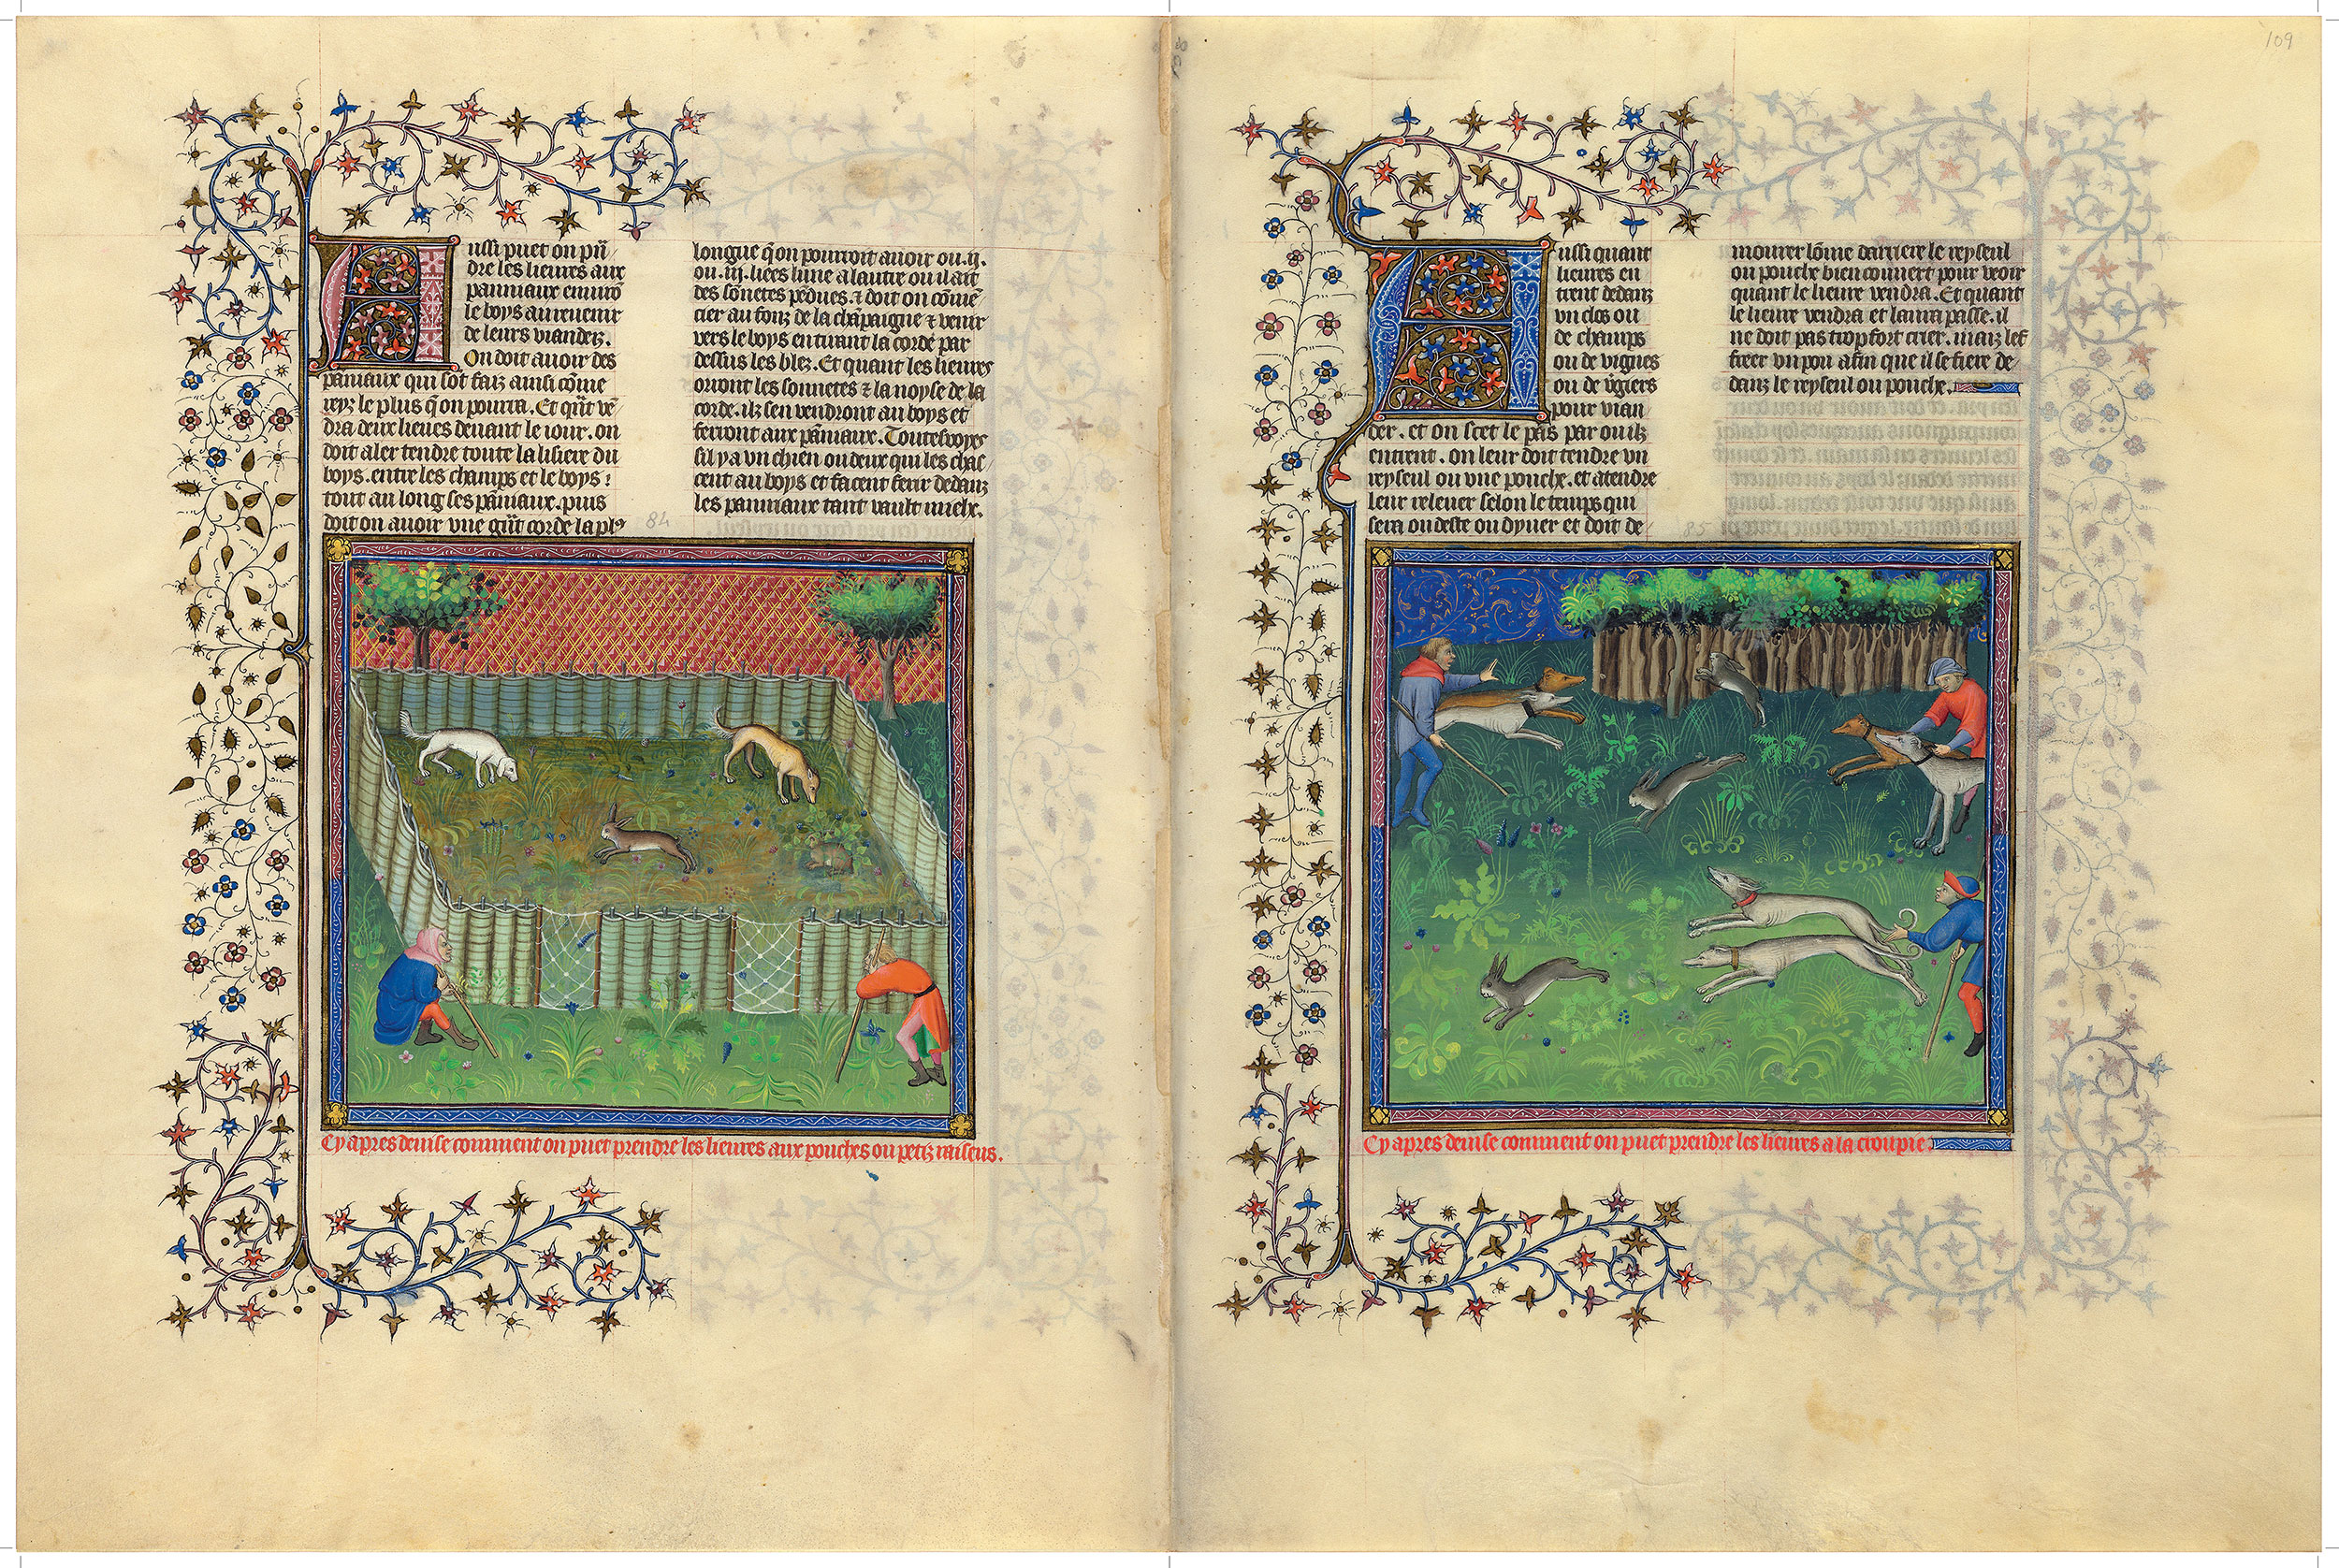 Aussi puet on pñ
dre les lieures aux
panniaux enuirõ
le boys au reuenir
de leurs viandez.
On doit auoir des
paniaux qui sõt faiz ainsi cõme
reyz le plus q̃ on pourra. Et q̃nt vẽ
dra deux lieues deuant le iour. on
doit aler tendre toute la lisiere du
boys. entre les champs et le boys:
tout au long ses pãniaux. puis
doit on auoir vne gñt corde la pl⁹
84
longue q̃ on pourroit auoir ou .ij.
ou .iij. liees lune a lautre ou il ait
des sõnetes pẽdues. ⁊ doit on cõmẽ
cier au fonz de la chãpaigne ⁊ venir
vers le boys en tirant la corde par
dessus les blez. Et quant les lieures
orront les sonnetes ⁊ la noyse de la
corde. ilz sen vendront au boys et
ferront aux pãniaux. Toutesuoyes
sil y a vn chien ou deux qui les chas
cent au boys et facent ferir dedanz
les panniaux tant vault mielx.
Cy apres deuise comment on puet prendre les lieures aux pouches ou petiz raiseus.
109
Aussi quant
lieures en
trent dedanz
vn clos ou
de champs
ou de vignes
ou de v̾giers
pour vian
der. et on scet le pas par ou ilz
entrent. on leur doit tendre vn
reyseul ou vne pouche. et atendre
leur releuer selon le temps qui
sera ou deste ou dyuer et doit de
85
mourer lõme darriere le reyseul
ou pouche bien couuert pour veoir
quant le lieure vendra. Et quant
le lieure vendra et laura passe. il
ne doit pas trop fort crier. maiz lef
freer vn pou afin que il se fiere de
danz le reyseul ou pouche.
Cy apres deuise comment on puet prendre les lieures a la croupie.